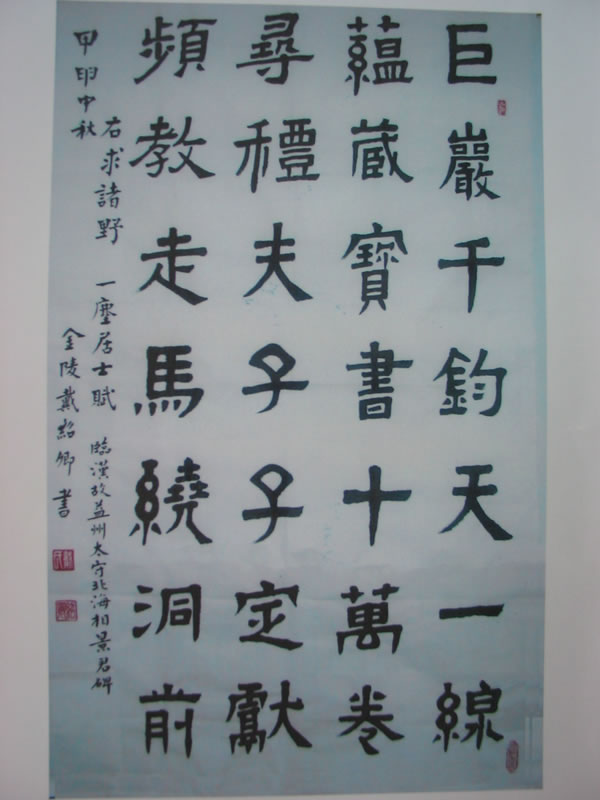 巨巖千鈞天一線
蘊蔵寶書十萬卷
尋禮夫子子定獻
頻教走馬繞洞前
右求諸野 一塵居士賦 臨漢故益州太守北海相景君碑
甲申中秋 金陵戴紹卿書